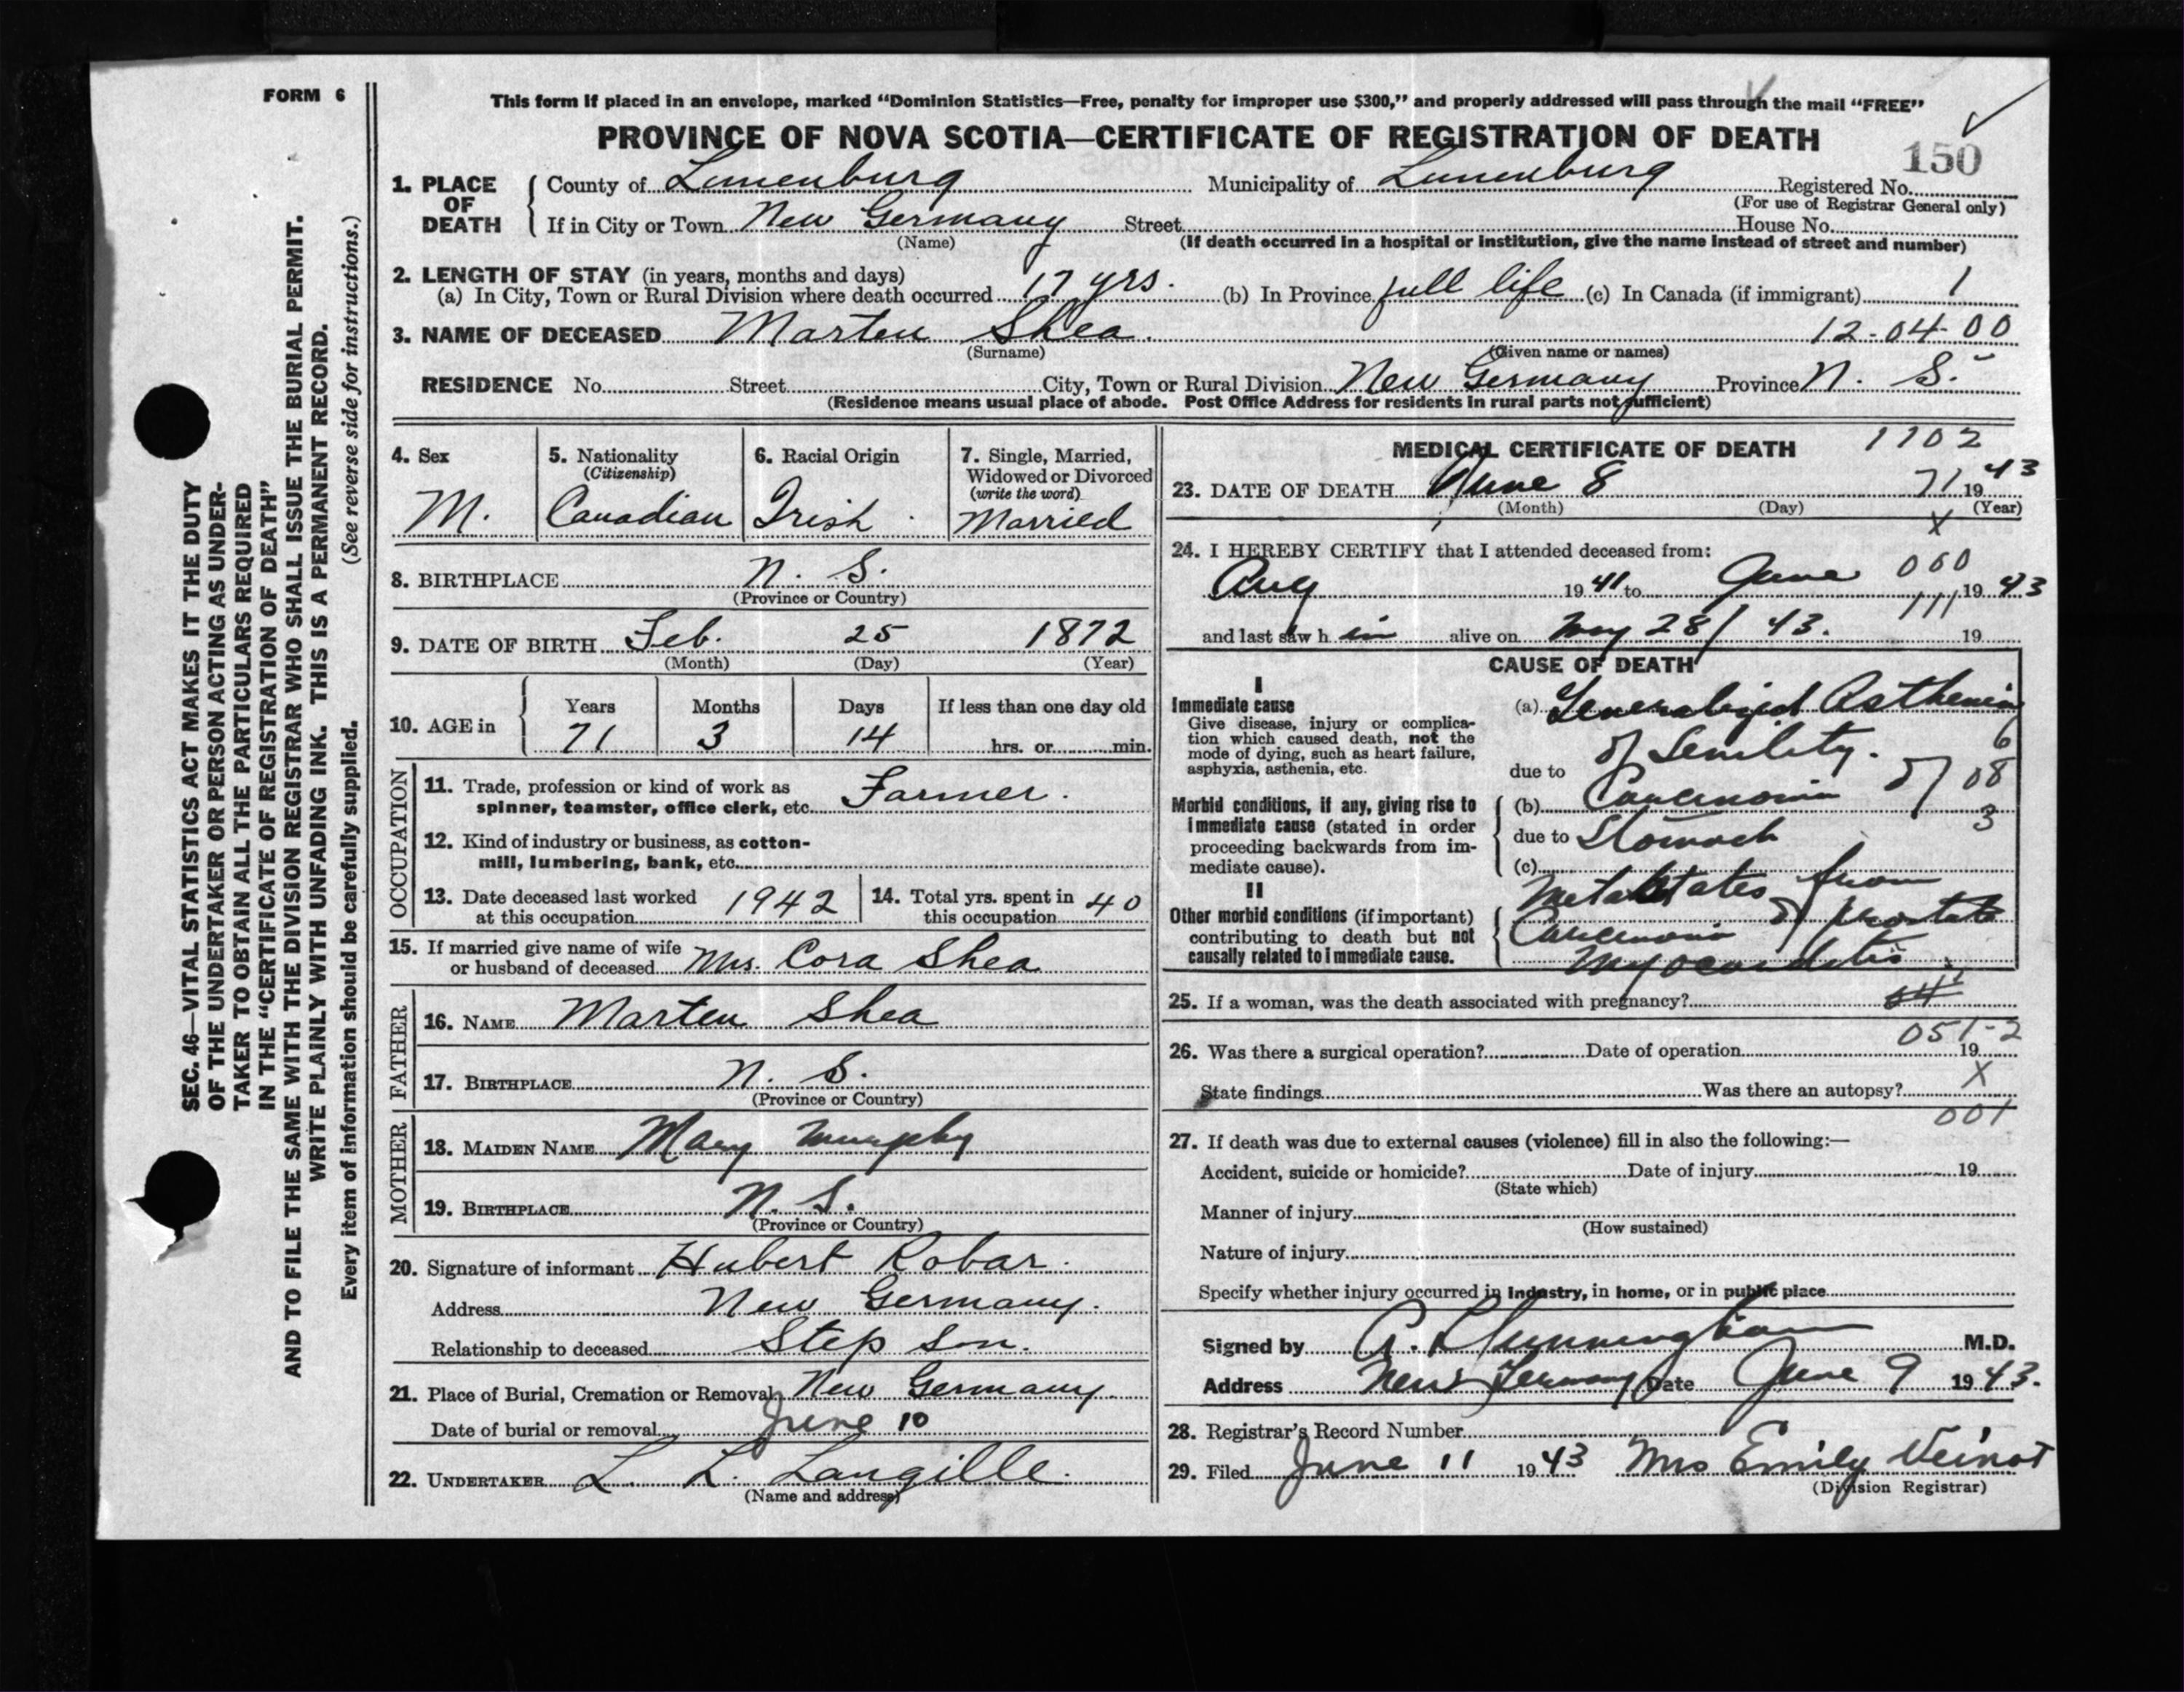 FORM 6
This form if placed in an envelope, marked “Dominion Statistics—Free, penalty for improper use $300,” and properly addressed will pass through the mail “FREE”
PROVINCE OF NOVA SCOTIA—CERTIFICATE OF REGISTRATION OF DEATH
150
1. PLACE OF DEATH County of Lunenburg Municipality of Lunenburg Registered No.
(For use of Registrar General only)
If in City or Town New Germany Street House No.
(Name) (If death occurred in a hospital or institution, give the name instead of street and number)
2. LENGTH OF STAY (in years, months and days)
(a) In City, Town or Rural Division where death occurred 17 yrs. (b) In Province full life (c) In Canada (if immigrant) 1
3. NAME OF DECEASED Marten Shea. 12-04-00
(Surname) (Given name or names)
RESIDENCE No. Street City, Town or Rural Division New Germany Province N. S.
(Residence means usual place of abode. Post Office Address for residents in rural parts not sufficient)
4. Sex M.
5. Nationality (Citizenship) Canadian
6. Racial Origin Irish.
7. Single, Married, Widowed or Divorced (write the word) Married
8. BIRTHPLACE N. S.
(Province or Country)
9. DATE OF BIRTH Feb. 25 1872
(Month) (Day) (Year)
10. AGE in Years Months Days If less than one day old
71 3 14 hrs. or min.
OCCUPATION
11. Trade, profession or kind of work as
spinner, teamster, office clerk, etc. Farmer.
12. Kind of industry or business, as cotton-
mill, lumbering, bank, etc.
13. Date deceased last worked at this occupation 1942
14. Total yrs. spent in this occupation 40
15. If married give name of wife
or husband of deceased Mrs. Cora Shea
FATHER
16. NAME Marten Shea
17. BIRTHPLACE N. S.
(Province or Country)
MOTHER
18. MAIDEN NAME Mary Murphy
19. BIRTHPLACE N. S.
(Province or Country)
20. Signature of informant Hubert Robar.
Address New Germany.
Relationship to deceased Step Son.
21. Place of Burial, Cremation or Removal New Germany.
Date of burial or removal June 10
22. UNDERTAKER L. L. Langille.
(Name and address)
MEDICAL CERTIFICATE OF DEATH 1702
23. DATE OF DEATH June 8 71 1943
(Month) (Day) (Year)
X
24. I HEREBY CERTIFY that I attended deceased from:
000
Aug 1941 to June 1943
111
and last saw h im alive on May 28/43. 19
CAUSE OF DEATH
I
Immediate cause
Give disease, injury or complica-
tion which caused death, not the
mode of dying, such as heart failure,
asphyxia, asthenia, etc.
(a) Generalized Asthenia
of Senility. 6
due to
Morbid conditions, if any, giving rise to
immediate cause (stated in order
proceeding backwards from im-
mediate cause).
(b) Carcinoma of 08
due to Stomach 3
(c)
II
Other morbid conditions (if important)
contributing to death but not
causally related to immediate cause.
Metastates from
Carcinoma of prostate
Myocarditis.
25. If a woman, was the death associated with pregnancy?
051-2
26. Was there a surgical operation? Date of operation 19
State findings Was there an autopsy? X
001
27. If death was due to external causes (violence) fill in also the following:—
Accident, suicide or homicide? Date of injury 19
(State which)
Manner of injury
(How sustained)
Nature of injury
Specify whether injury occurred in Industry, in home, or in public place
Signed by Cunningham M.D.
Address New Germany Date June 9 1943.
28. Registrar's Record Number
29. Filed June 11 1943 Mrs Emily Veinot
(Division Registrar)
SEC. 46—VITAL STATISTICS ACT MAKES IT THE DUTY
OF THE UNDERTAKER OR PERSON ACTING AS UNDER-
TAKER TO OBTAIN ALL THE PARTICULARS REQUIRED
IN THE “CERTIFICATE OF REGISTRATION OF DEATH”
AND TO FILE THE SAME WITH THE DIVISION REGISTRAR WHO SHALL ISSUE THE BURIAL PERMIT.
WRITE PLAINLY WITH UNFADING INK. THIS IS A PERMANENT RECORD.
Every item of information should be carefully supplied. (See reverse side for instructions.)